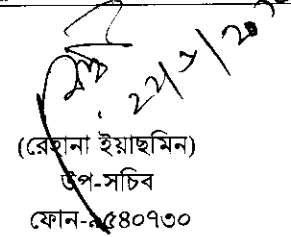 (রেহানা ইয়াছমিন)
উপ-সচিব
ফোন-৯৫৪০৭৩০